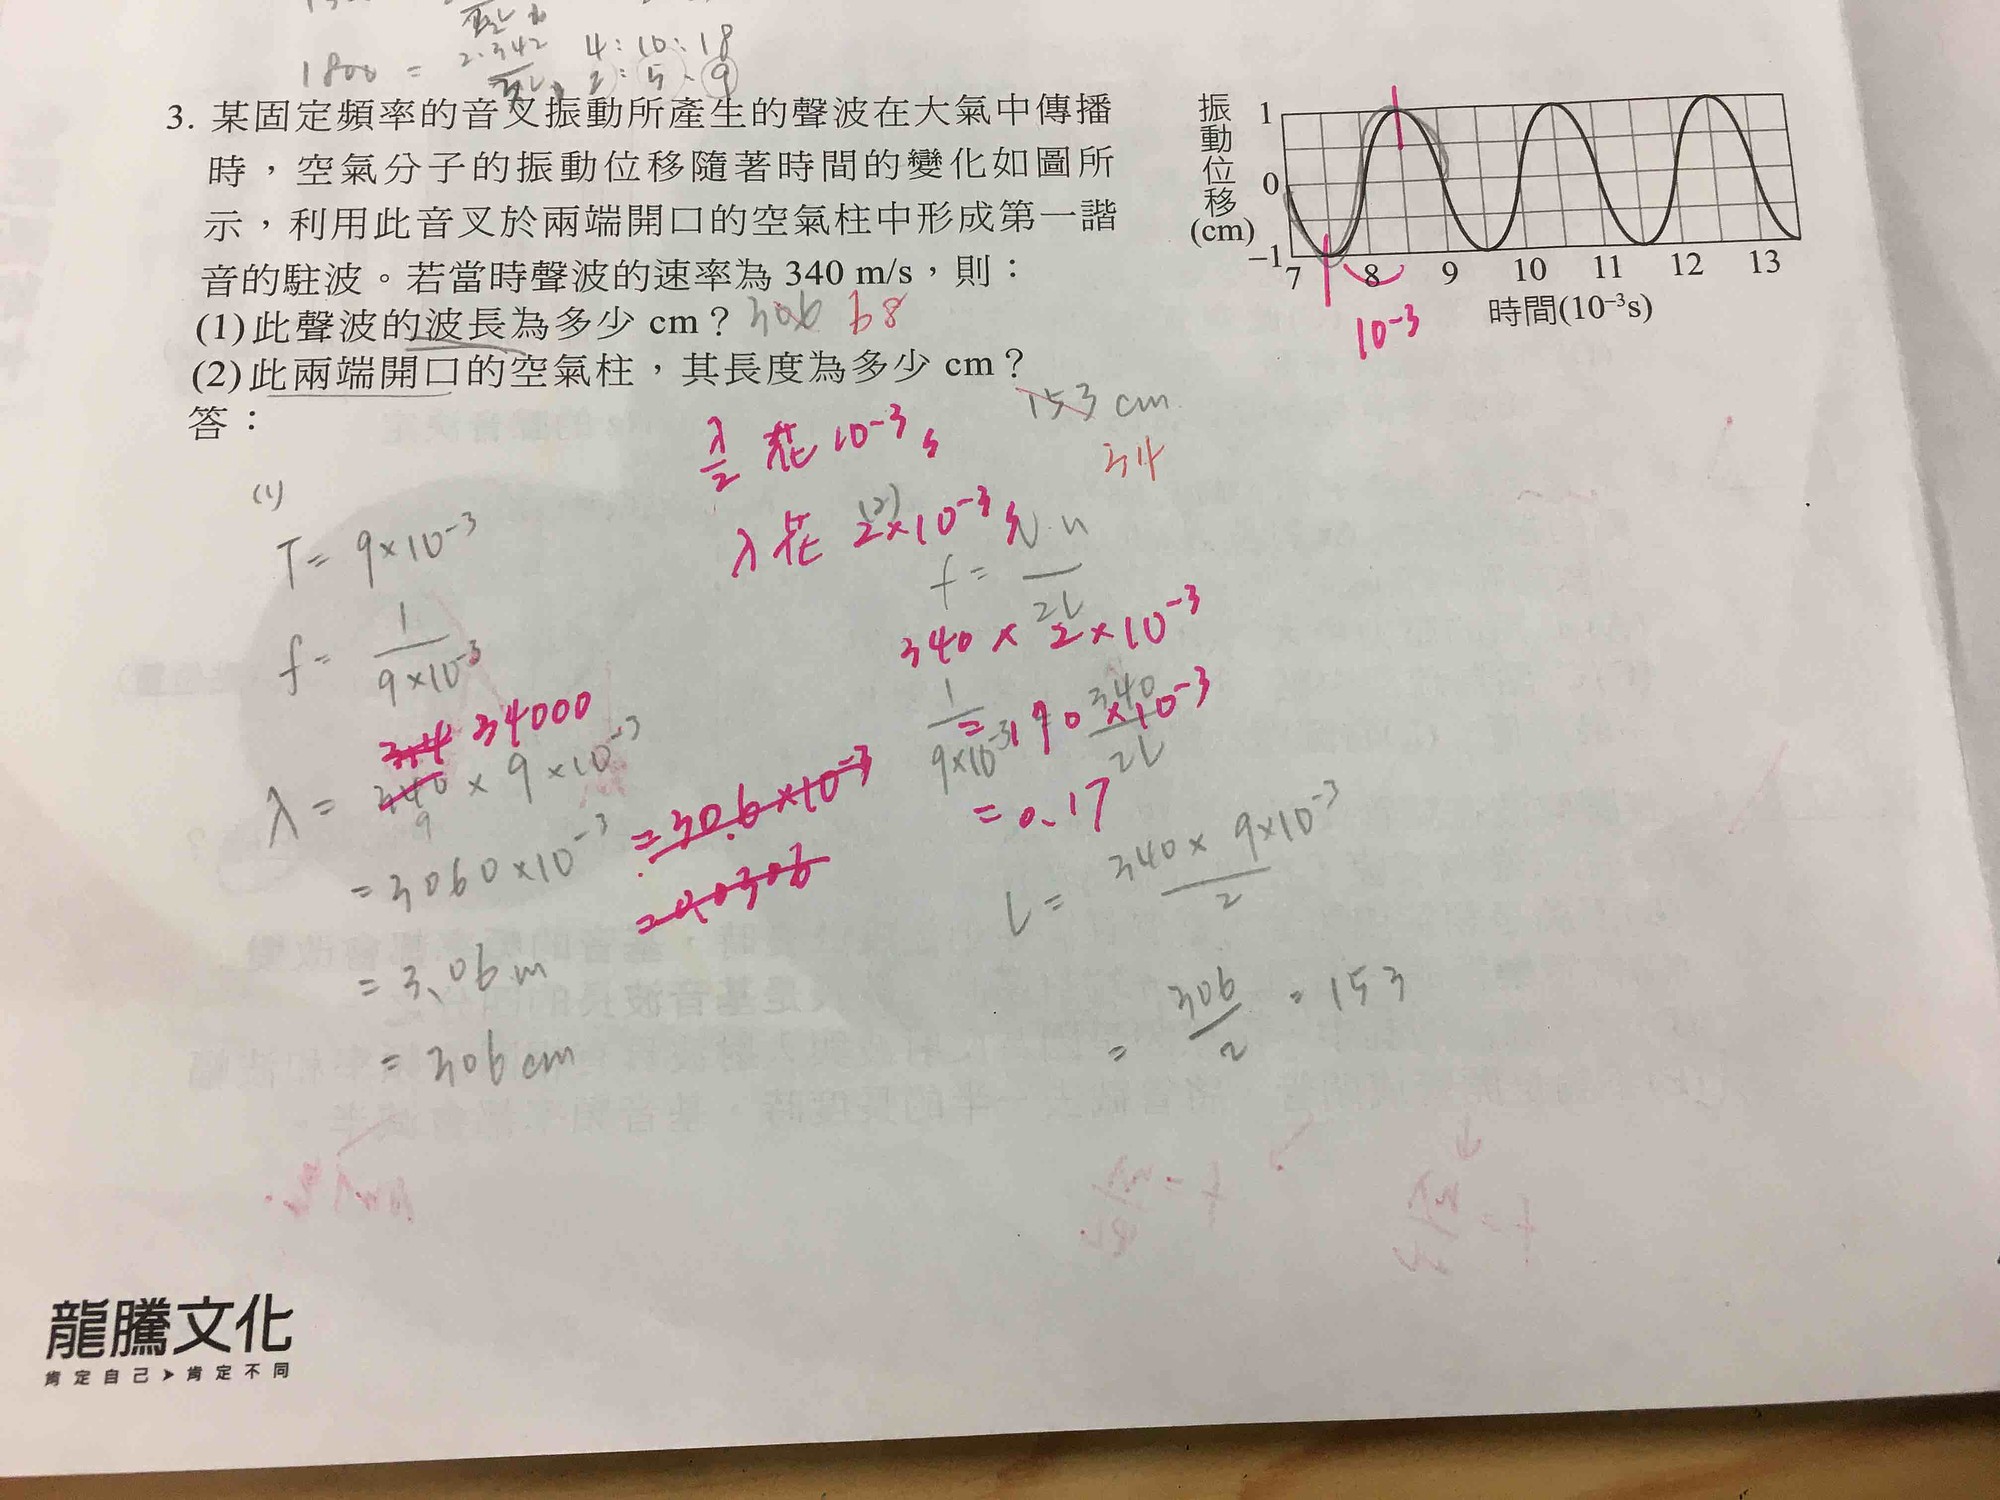 1800 = 2.342 4:10:18
2L 2:5:9
3. 某固定頻率的音叉振動所產生的聲波在大氣中傳播
時，空氣分子的振動位移隨著時間的變化如圖所
示，利用此音叉於兩端開口的空氣柱中形成第一諧
音的駐波。若當時聲波的速率為 340 m/s，則：
(1)此聲波的波長為多少 cm？306 68
(2)此兩端開口的空氣柱，其長度為多少 cm？
153 cm
34
答：
振動位移(cm)
1
0
-1
7 8 9 10 11 12 13
時間(10⁻³s)
10⁻³
λ/2 花 10⁻³ s
λ 花 2×10⁻³ s
340 × 2×10⁻³
= 190 ×10⁻³
= 0.17
(1)
T = 9×10⁻³
f = 1/9×10⁻³
34000
λ = 340 × 9 ×10⁻³
= 3060×10⁻³
= 30.6×10⁻³
= 0.0306
= 3.06 m
= 306 cm
(2)
f = n·v/2L
1/9×10⁻³ 340/2L
L = 340× 9×10⁻³/2
= 306/2 = 153
龍騰文化
肯定自己➤肯定不同